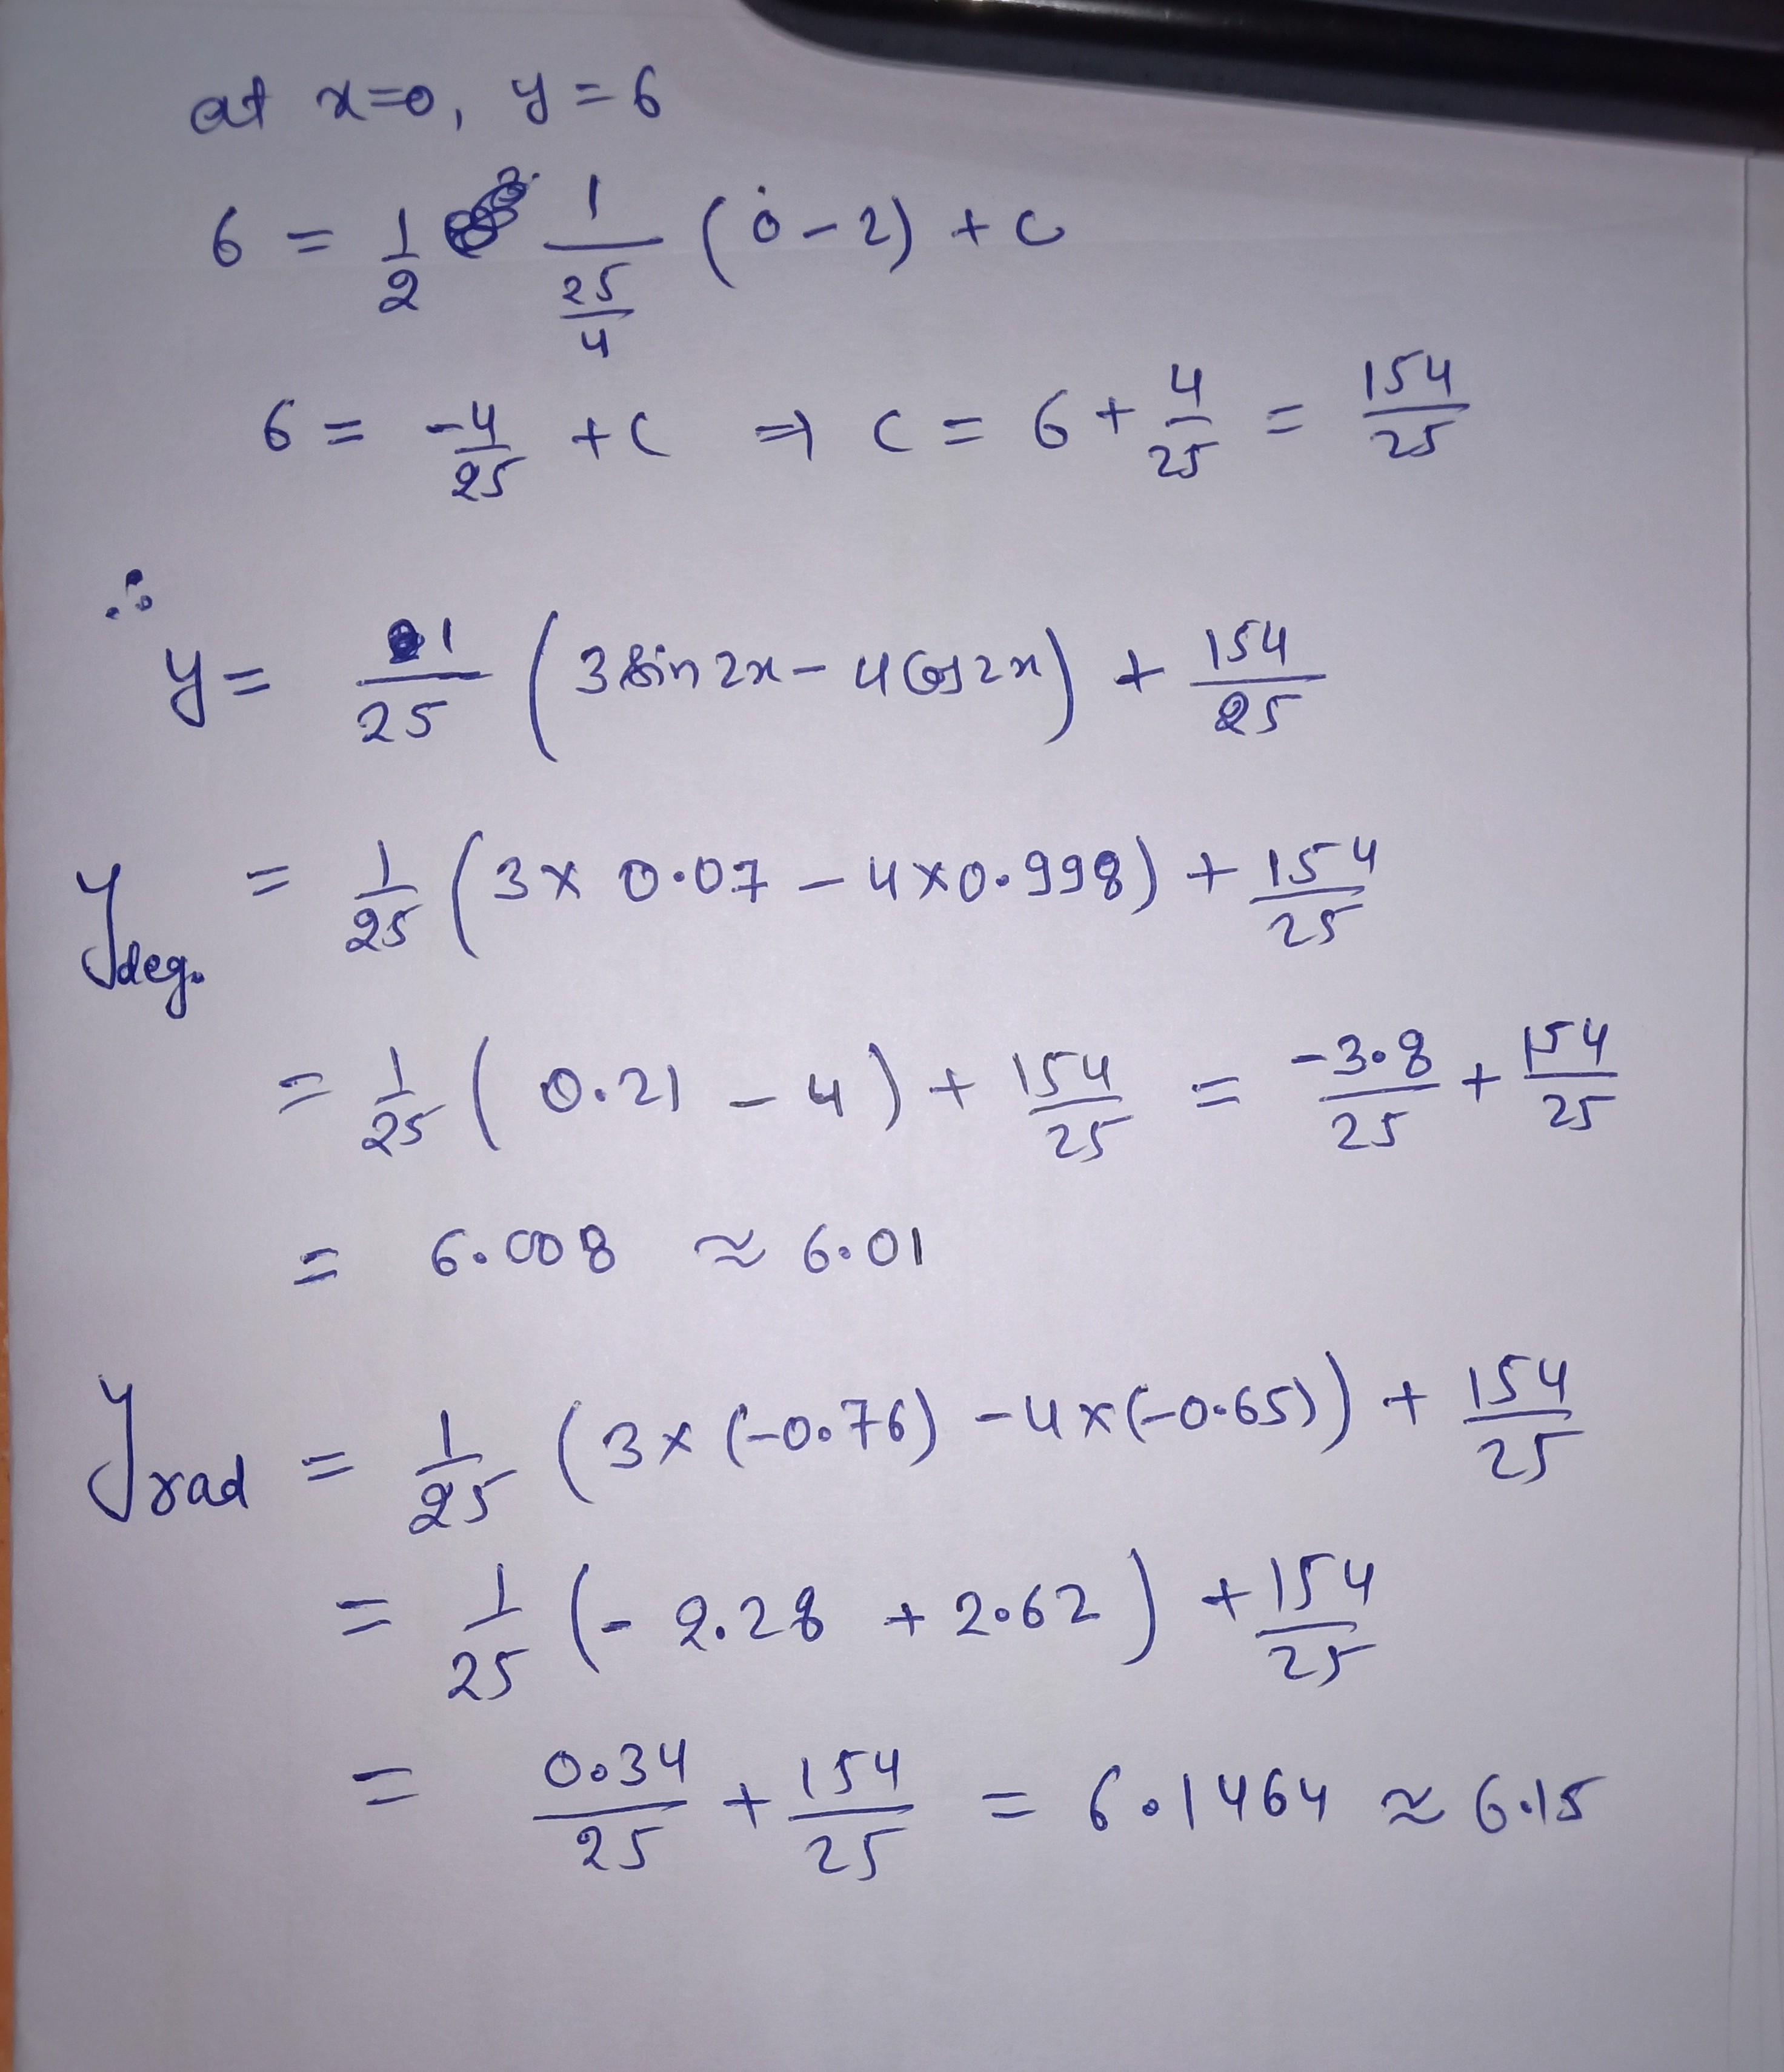 at x=0, y=6
6 = 1/2 1/(25/4) (0-2) + C
6 = -4/25 + C ⇒ C = 6 + 4/25 = 154/25
∴ y = 1/25 (3 sin 2x - 4 cos 2x) + 154/25
y deg. = 1/25 (3 × 0.07 - 4×0.998) + 154/25
= 1/25 (0.21 - 4) + 154/25 = -3.8/25 + 154/25
= 6.008 ≈ 6.01
y rad = 1/25 (3 × (-0.76) - 4×(-0.65)) + 154/25
= 1/25 (- 2.28 + 2.62) + 154/25
= 0.34/25 + 154/25 = 6.1464 ≈ 6.15